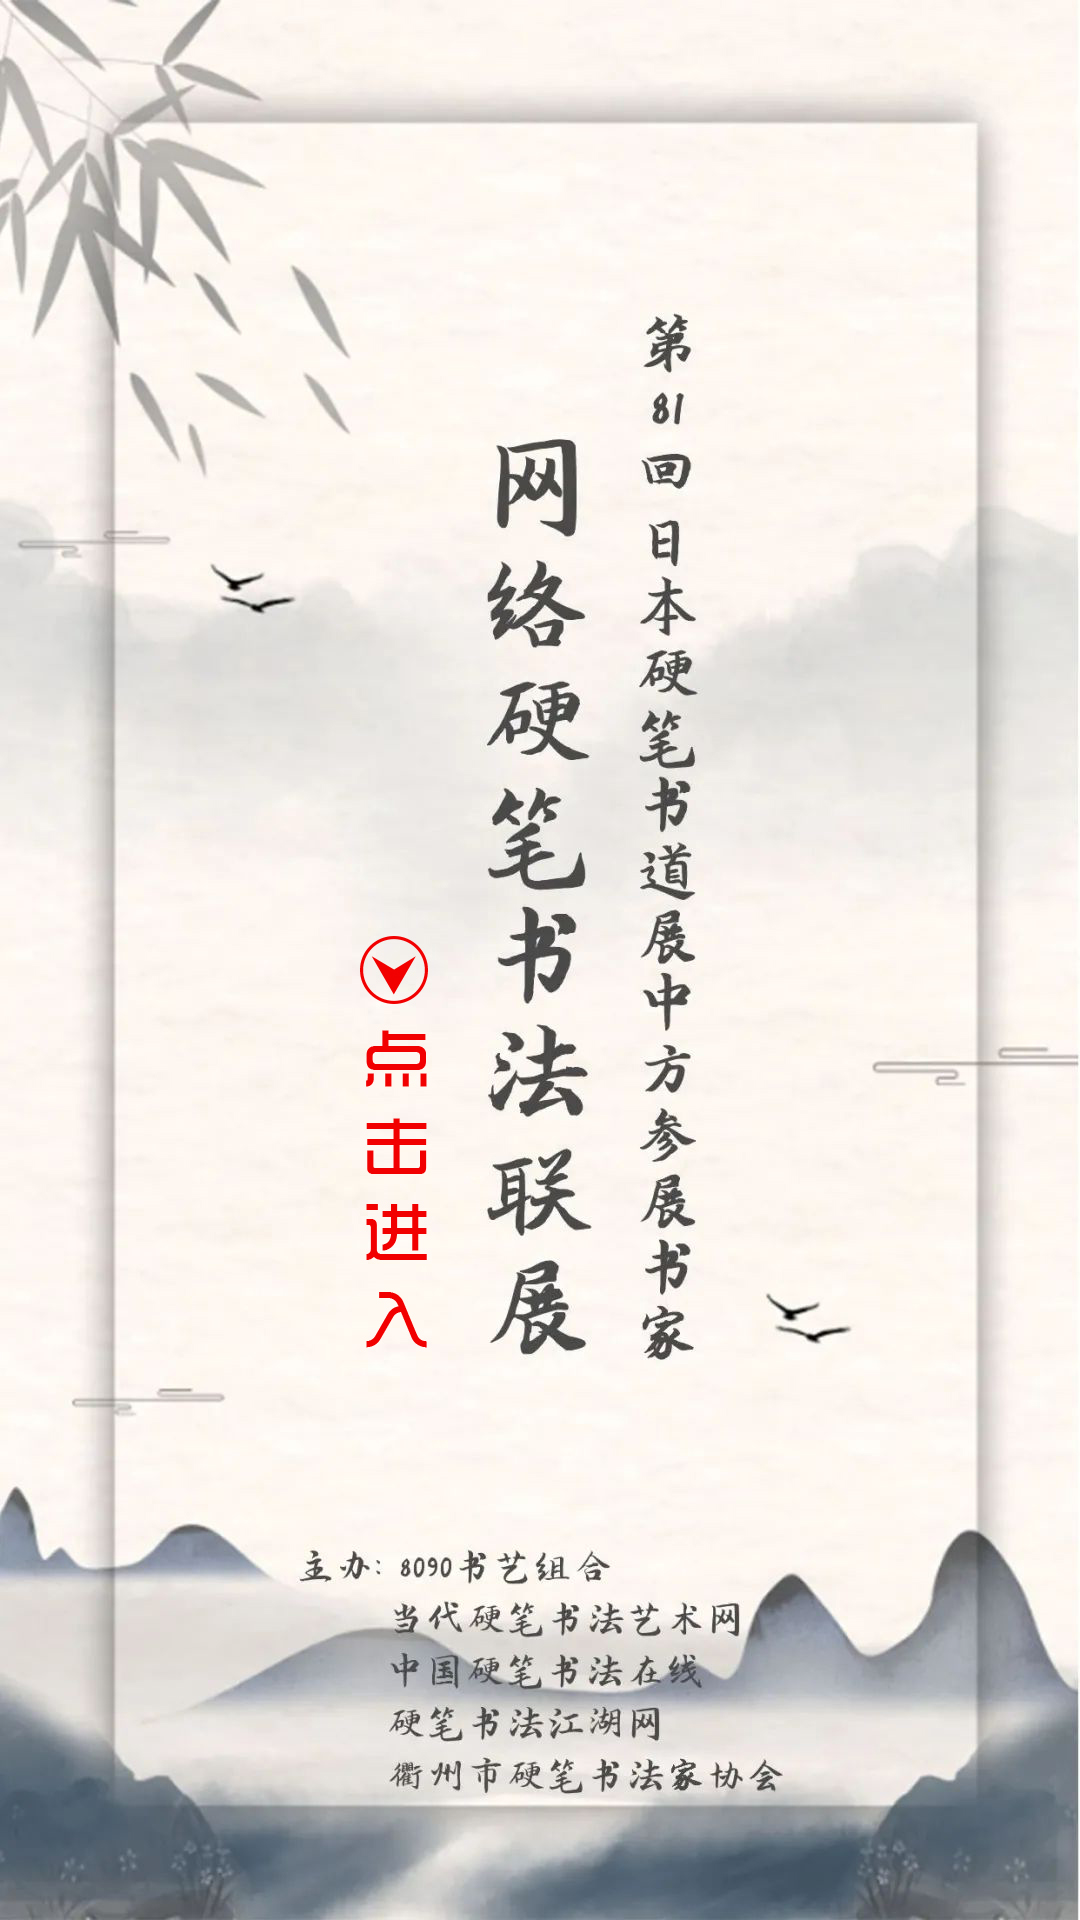 第81回日本硬笔书道展中方参展书家
网络硬笔书法联展
点击进入
主办：8090书艺组合
当代硬笔书法艺术网
中国硬笔书法在线
硬笔书法江湖网
衢州市硬笔书法家协会